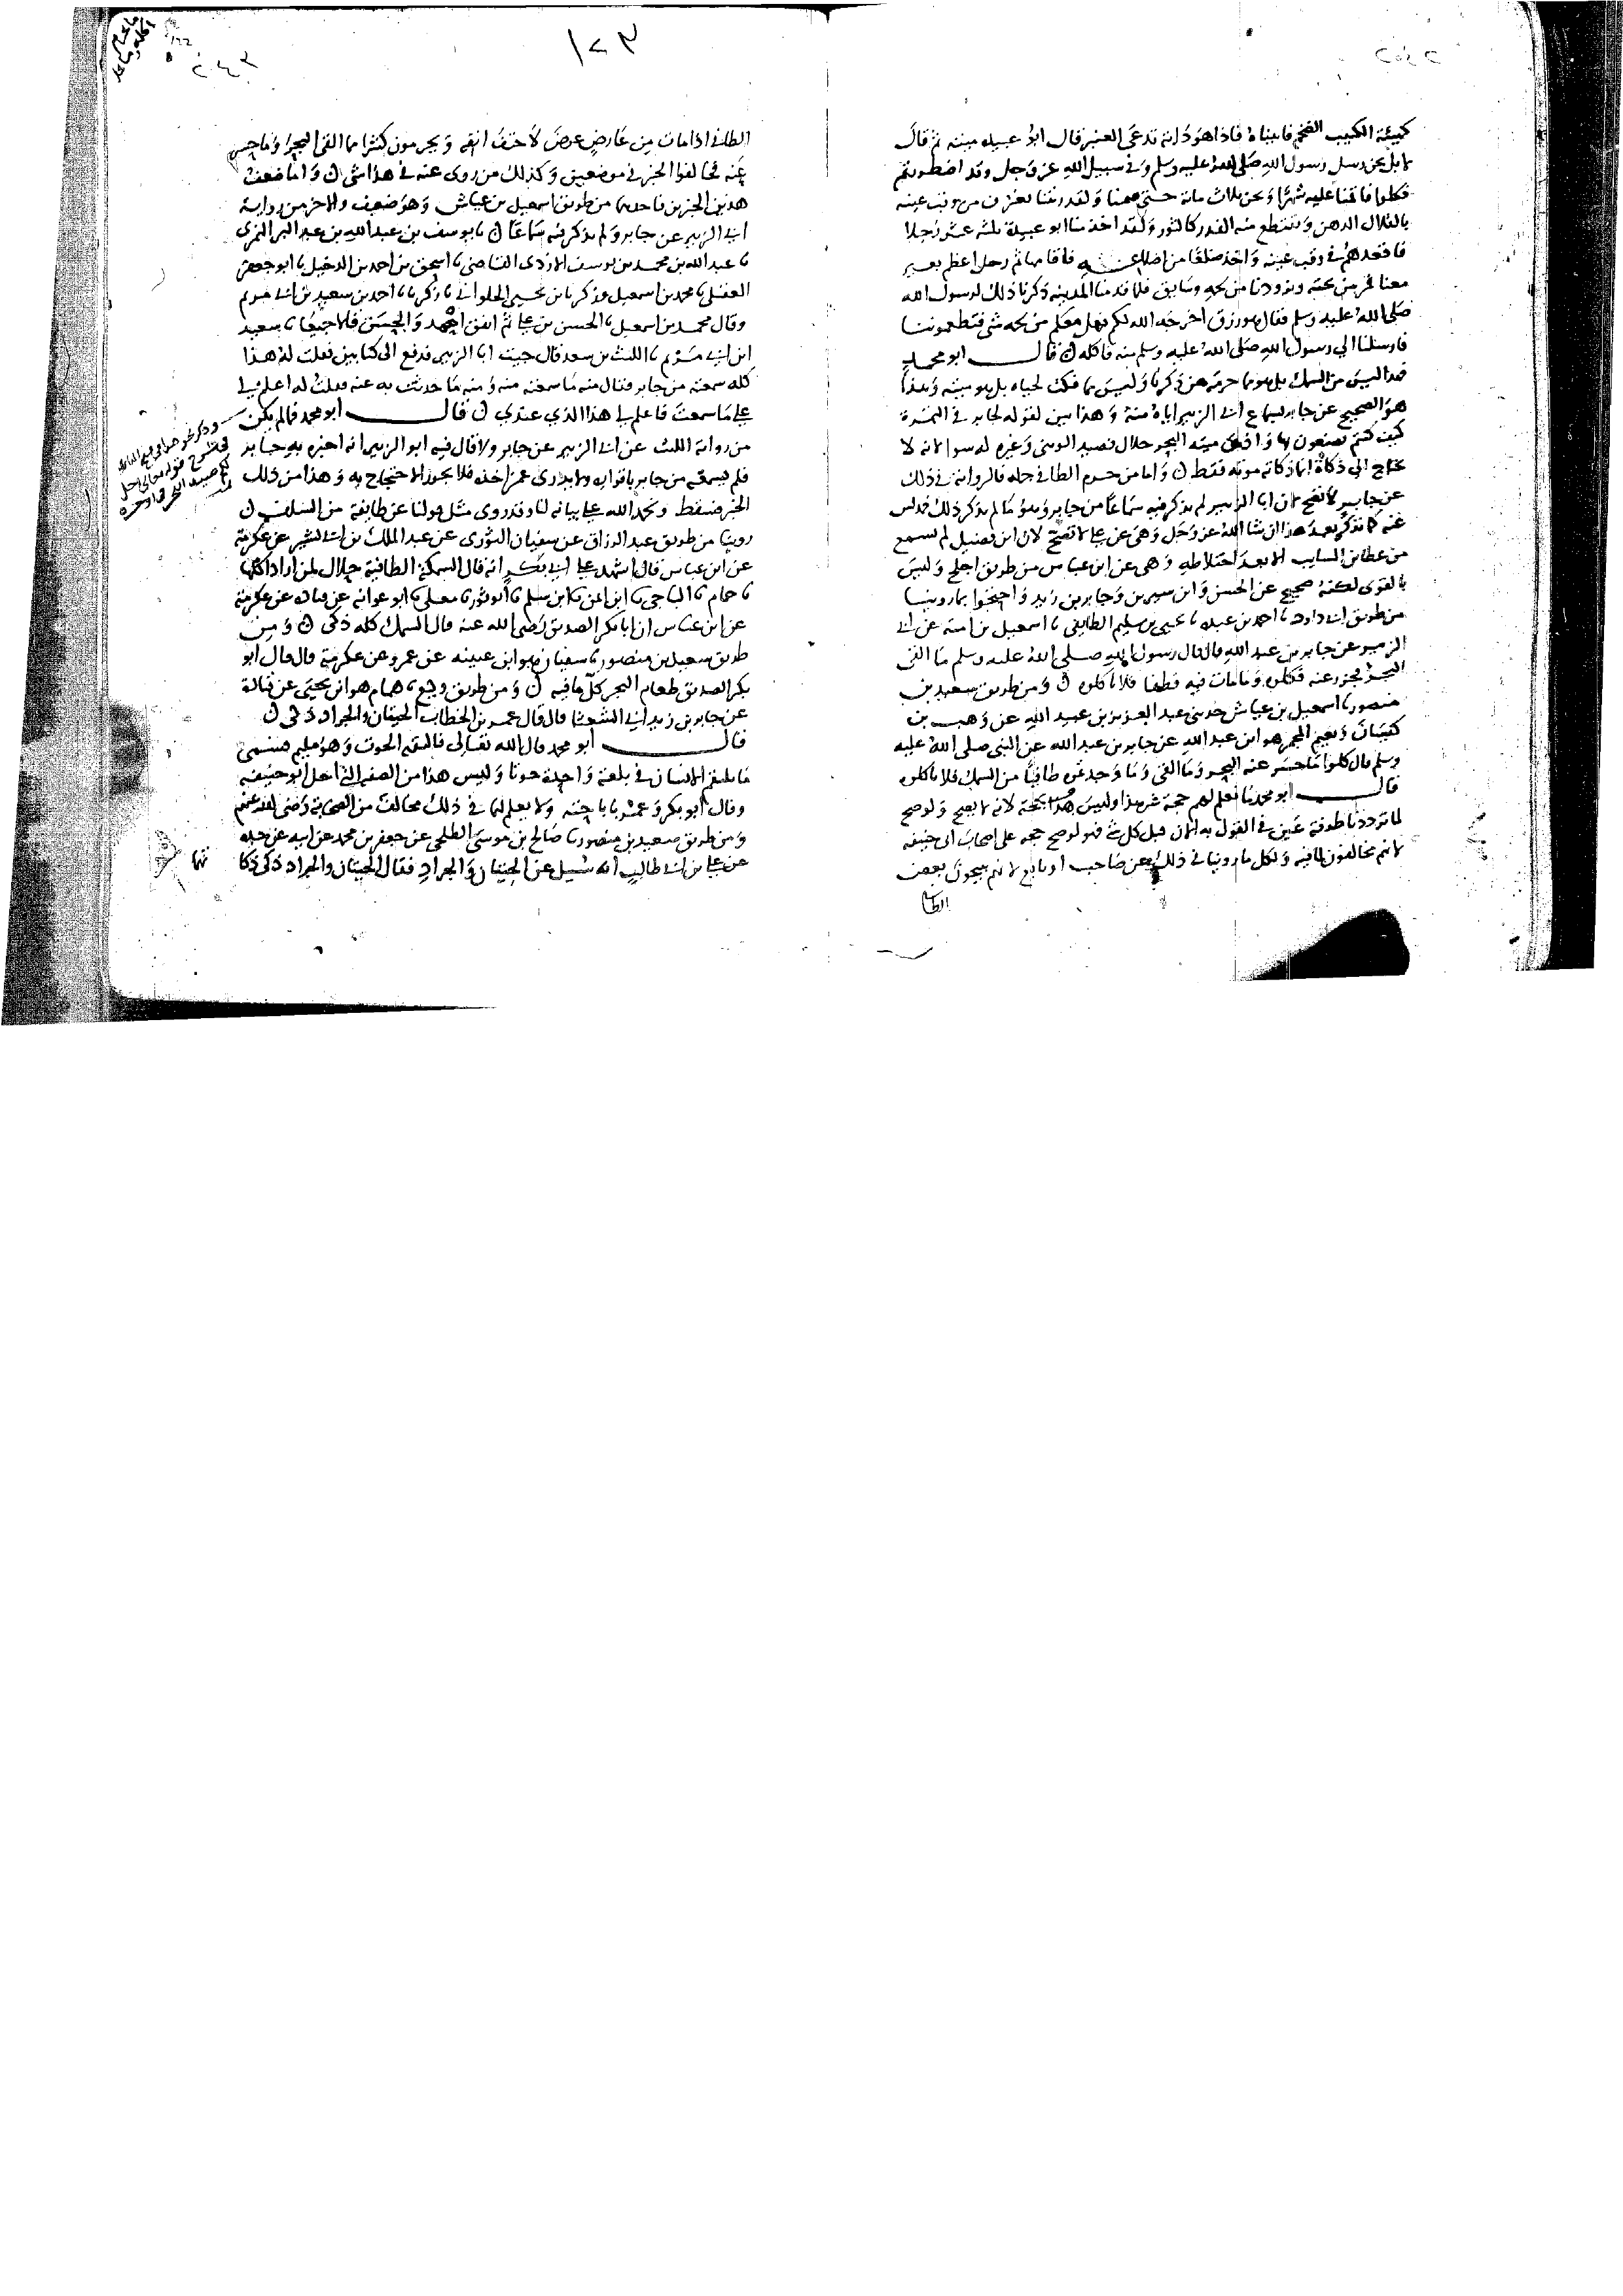 ١٢٣
٢٤٣
كهيئة الكثيب الضخم فاتيناه فاذا هو دابة تدعى العنبر قال ابو عبيده ميته ثم قال
لا بل نحن رسل رسول الله صلى الله عليه وسلم وفي سبيل الله عز وجل وقد اضطررتم
فكلوا فاقمنا عليه شهرا ونحن ثلاث مائة حتى سمنا ولقد رايتنا نغترف من وقب عينه
بالقلال الدهن ونقتطع منه الفدر كالثور ولقد اخذ منا ابو عبيدة ثلثة عشر رجلا
فاقعدهم في وقب عينه واخذ ضلعا من اضلاعه فاقامها ثم رحل اعظم بعير
معنا فمر من تحته وتزودنا من لحمه وشايق فلما قدمنا المدينه ذكرنا ذلك لرسول الله
صلى الله عليه وسلم فقال هو رزق اخرجه الله لكم فهل معكم من لحمه شي فتطعموننا
فارسلنا الى رسول الله صلى الله عليه وسلم منه فاكله ن قال ابو محمد
فهذا ليس من السمك بل هو مما حرمه من ذكرنا وليس مما مكث لحياه بل هو ميته وهذا
هو الصحيح عن جابر لسماع ابي الزبير اياه منه وهذا بين لقوله لجابر في التمرة
كيف كنتم تصنعون بها ميته البحر حلال تصيد الوسى وغيره له سوا لانه لا
يحتاج الى ذكاة انما ذكاته موته فقط ن واما من حرم الطافي جمله فالرواية في ذلك
عن جابر لا تصح لان ابا الزبير لم يذكر فيه سماعا من جابر وهو ما لم يذكر ذلك مدلس
عنه كما نذكر بعد هذا ان شا الله عز وجل وهي عن علي لا تصح لان ابن فضيل لم يسمع
من عطا بن السايب الا بعد اختلاطه وهي عن ابن عباس من طريق اجلح وليس
بالقوى لكنه صحيح عن الحسن وابن سيرين وجابر بن زيد واحتجوا بما روينا
من طريق ابي داود نا احمد بن عبده نا يحيى بن سليم الطايفي نا اسمعيل بن امية عن ابي
الزبير عن جابر بن عبد الله قال قال رسول الله صلى الله عليه وسلم ما القى
البحر او جزر عنه فكلوه وما مات فيه فطفا فلا تاكلوه ن ومن طريق سعيد بن
منصور نا اسمعيل بن عياش حدثني عبد العزيز بن عبيد الله عن وهب بن
كيسان ونعيم المجمر هو ابن عبد الله عن جابر بن عبد الله عن النبي صلى الله عليه
وسلم قال كلوا ما حسر عنه البحر وما القى وما وجدتموه طافيا من السمك فلا تاكلوه
قال ابو محمد ما نعلم لهم حجة غير هذا وليس هذا بحجة لانه لا يصح ولو صح
لما ترددنا طرفة عين في القول به لكان قبل كل شي فهو لو صح حجه على اصحاب ابي حنيفه
لانهم مخالفون لما فيه ولكل ما روينا في ذلك عن صاحب او تابع لانهم يبيحون بعض
الطا
الطافي اذا مات من عارض عرض لا حتف انفه ويحرمون كثيرا مما القى البحر وما حسر
عنه فخالفوا الخبر في موضعين وكذلك من روى عنه في هذا شي ن واما ضعف
هذين الخبرين فاحدهما من طريق اسمعيل بن عياش وهو ضعيف والاخر من رواية
ابي الزبير عن جابر ولم يذكر فيه سماعا ن نا يوسف بن عبد الله بن عبد البر النمرى
نا عبد الله بن محمد بن يوسف الازدى القاضي نا اسحق بن احمد بن الدخيل نا ابو جعفر
العقيلي نا محمد بن اسمعيل وزكريا بن يحيى الحلواني نا زكريا نا احمد بن سعيد بن ابي مريم
وقال محمد بن اسمعيل نا الحسن بن علي ثم اتفق احمد والحسن قالا جميعا نا سعيد
ابن ابي مريم نا الليث بن سعد قال جيت ابا الزبير فدفع الى كتابين فقلت له هذا
كله سمعته من جابر فقال منه ما سمعته منه ومنه ما حدثت به عنه فقلت له اعلم لي
على ما سمعت فاعلم لي هذا الذي عندي ن قال ابو محمد فما لم يكن
من رواية الليث عن ابي الزبير عن جابر ولا قال فيه ابو الزبير انه اخبره به جابر
فلم يسمعه من جابر باقراره ولا يدرى عمن اخذه فلا يجوز الاحتجاج به وهذا من ذلك
الخبر فسقط ونحمد الله على بيانه لنا وقد روى مثل قولنا عن طايفة من السلف ن
روينا من طريق عبد الرزاق عن سفيان الثورى عن عبد الملك بن ابي بشير عن عكرمة
عن ابن عباس قال اشهد على ابي بكر انه قال السمكة الطافية حلال لمن اراد اكلها
نا حمام نا الباجي نا ابن ايمن نا ابن مسلم نا ابو ثور نا معلى نا ابو عوانه عن قتادة عن عكرمة
عن ابن عباس ان ابا بكر الصديق رضى الله عنه قال السمك كله ذكى ن ومن
طريق سعيد بن منصور نا سفيان هو ابن عيينه عن عمرو عن عكرمة قال قال ابو
بكر الصديق طعام البحر كل ما فيه ن ومن طريق وكيع نا همام هو ابن يحيى عن قتادة
عن جابر بن زيد ابي الشعثا قال قال عمر بن الخطاب الحيتان والجراد ذكى ن
قال ابو محمد قال الله تعالى فالتقمه الحوت وهو مليم فسمى
ما يلتقم الانسان في بلعة واحدة حوتا وليس هذا من الصفة التي احل ابو حنيفه
وقال ابو بكر وعمر باباحته ولا يعلم لهما في ذلك مخالف من الصحابه رضى الله عنهم
ومن طريق سعيد بن منصور نا صالح بن موسى الطلحي عن جعفر بن محمد عن ابيه عن جده
عن علي بن ابي طالب انه سئل عن الحيتان والجراد فقال الحيتان والجراد ذكى ذكا
تها